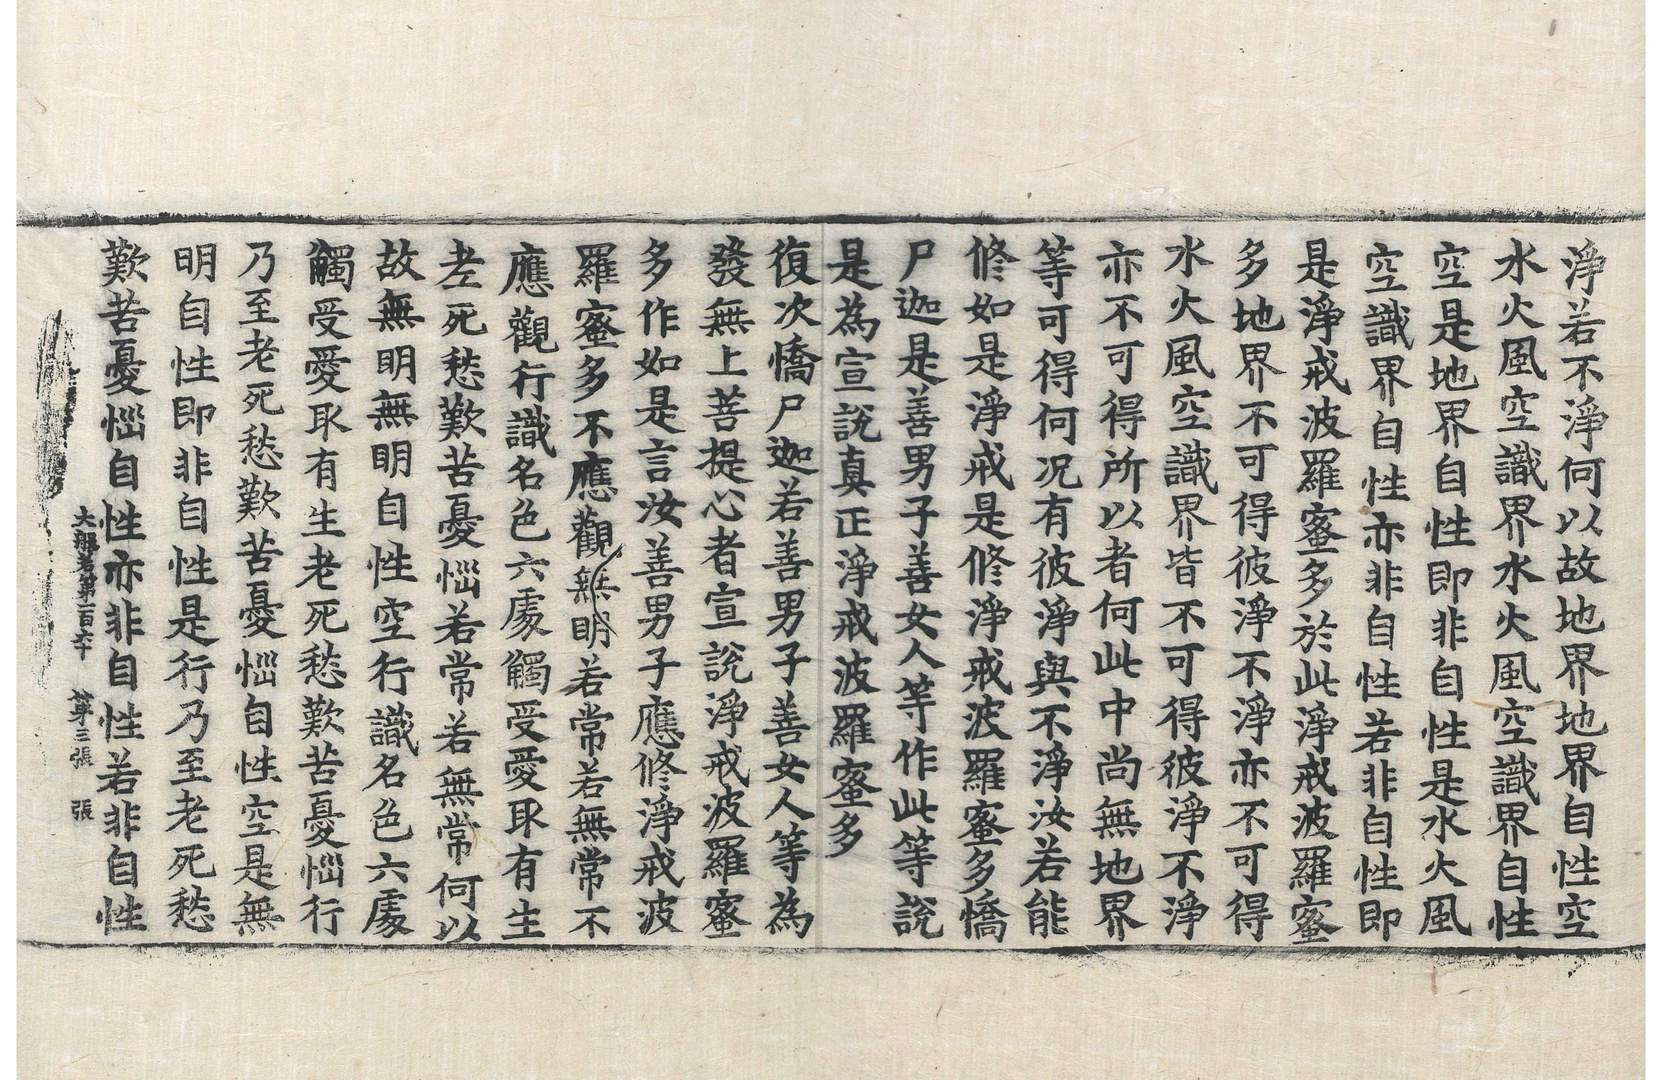 淨若不淨何以故地界地界自性空
水火風空識界水火風空識界自性
空是地界自性即非自性是水火風
空識界自性亦非自性若非自性即
是淨戒波羅蜜多於此淨戒波羅蜜
多地界不可得彼淨不淨亦不可得
水火風空識界皆不可得彼淨不淨
亦不可得所以者何此中尚無地界
等可得何況有彼淨與不淨汝若能
修如是淨戒是修淨戒波羅蜜多憍
尸迦是善男子善女人等作此等說
是為宣說真正淨戒波羅蜜多
復次憍尸迦若善男子善女人等為
發無上菩提心者宣說淨戒波羅蜜
多作如是言汝善男子應修淨戒波
羅蜜多不應觀無明若常若無常不
應觀行識名色六處觸受愛取有生
老死愁歎苦憂惱若常若無常何以
故無明無明自性空行識名色六處
觸受愛取有生老死愁歎苦憂惱行
乃至老死愁歎苦憂惱自性空是無
明自性即非自性是行乃至老死愁
歎苦憂惱自性亦非自性若非自性
大般若第一百六十 第三張 張